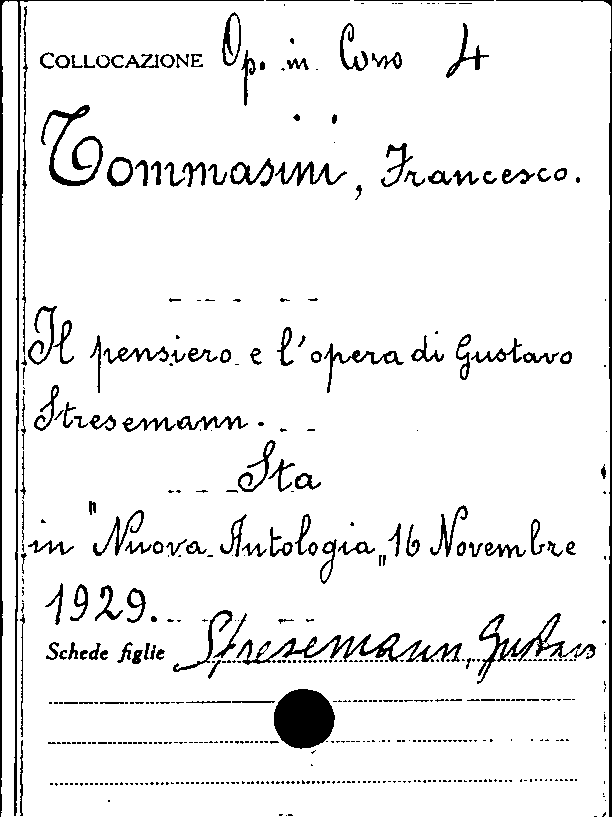 COLLOCAZIONE Op. in Corso 4
Tommasini, Francesco.
Il pensiero e l'opera di Gustavo
Stresemann.
Sta
in "Nuova Antologia„ 16 Novembre
1929.
Schede figlie Stresemann, Gustavo